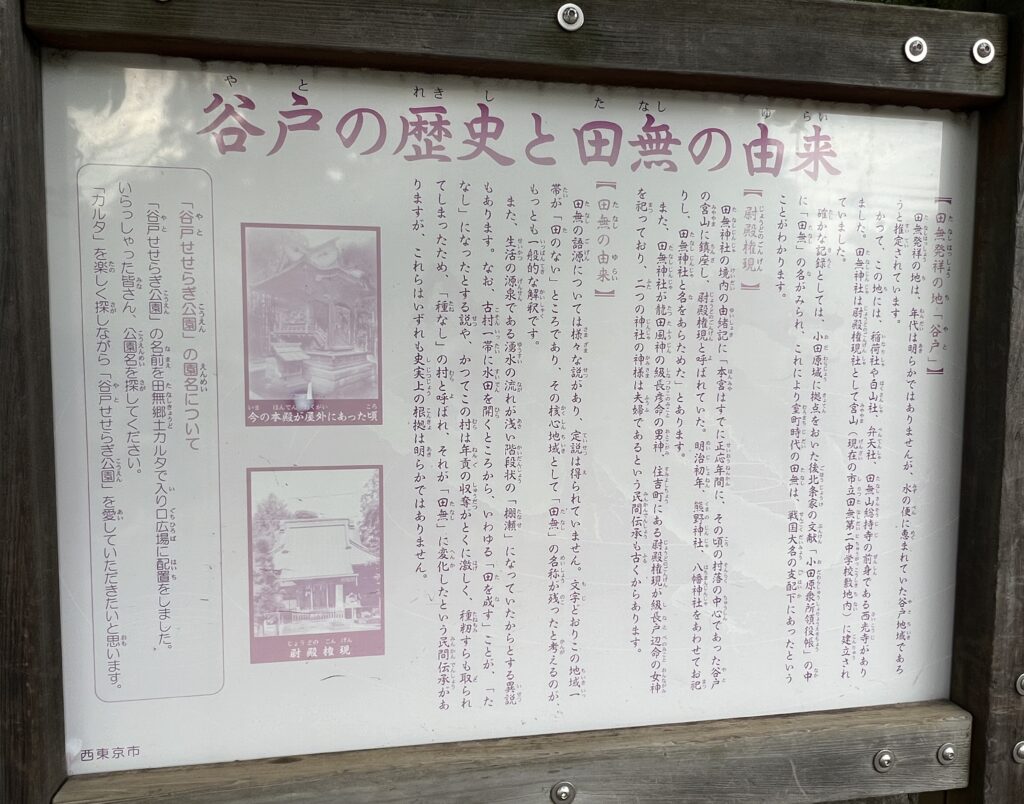 谷戸の歴史と田無の由来
【田無発祥の地「谷戸」】
田無発祥の地は、年代は明らかではありませんが、水の便に恵まれていた谷戸地域であろ
うと推定されています。
かつて、この地には、稲荷社や白山社、弁天社、田無山総持寺の前身である西光寺があり
ました。田無神社は尉殿権現社として宮山（現在の市立田無第二中学校敷地内）に建立され
ていました。
確かな記録としては、小田原城に拠点をおいた後北条家の文献「小田原衆所領役帳」の中
に「田無」の名がみられ、これにより室町時代の田無は、戦国大名の支配下にあったという
ことがわかります。
【尉殿権現】
田無神社の境内の由緒記に「本宮はすでに正応年間に、その頃の村落の中心であった谷戸
の宮山に鎮座し、尉殿権現と呼ばれていた。明治初年、熊野神社、八幡神社をあわせてお祀
りし、田無神社と名をあらためた」とあります。
また、田無神社が龍田風神の級長彦命の男神、住吉町にある尉殿権現が級長戸辺命の女神
を祀っており、二つの神社の神様は夫婦であるという民間伝承も古くからあります。
【田無の由来】
田無の語源については様々な説があり、定説は得られていません。文字どおりこの地域一
帯が「田のない」ところであり、その核心地域として「田無」の名称が残ったと考えるのが、
もっとも一般的な解釈です。
また、生活の源泉である湧水の流れが浅い階段状の「棚瀬」になっていたからとする異説
もあります。なお、古村一帯に水田を開くところから、いわゆる「田を成す」ことが、「た
なし」になったとする説や、かつてこの村は年貢の収奪がとくに激しく、種籾すらも取られ
てしまったため、「種なし」の村と呼ばれ、それが「田無」に変化したという民間伝承があ
りますが、これらはいずれも史実上の根拠は明らかではありません。
今の本殿が屋外にあった頃
尉殿権現
「谷戸せせらぎ公園」の園名について
「谷戸せせらぎ公園」の名前を田無郷土カルタで入り口広場に配置をしました。
いらっしゃった皆さん、公園名を探してください。
「カルタ」を楽しく探しながら「谷戸せせらぎ公園」を愛していただきたいと思います。
西東京市